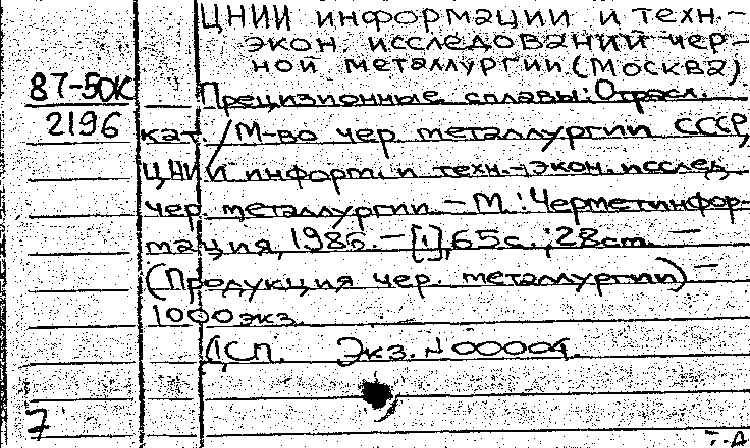 ЦНИИ информации и техн.-
экон. исследований чер-
ной металлургии (Москва)
87-50К Прецизионные сплавы: Отрасл.
2196 кат. / М-во чер. металлургии СССР,
ЦНИИ информ. и техн.-экон. исслед.
чер. металлургии. – М.: Черметинфор-
мация, 1986. – [1], 65 с.; 28 см. –
(Продукция чер. металлургии) –
1000 экз.
ДСП. Экз. N 00004.
7